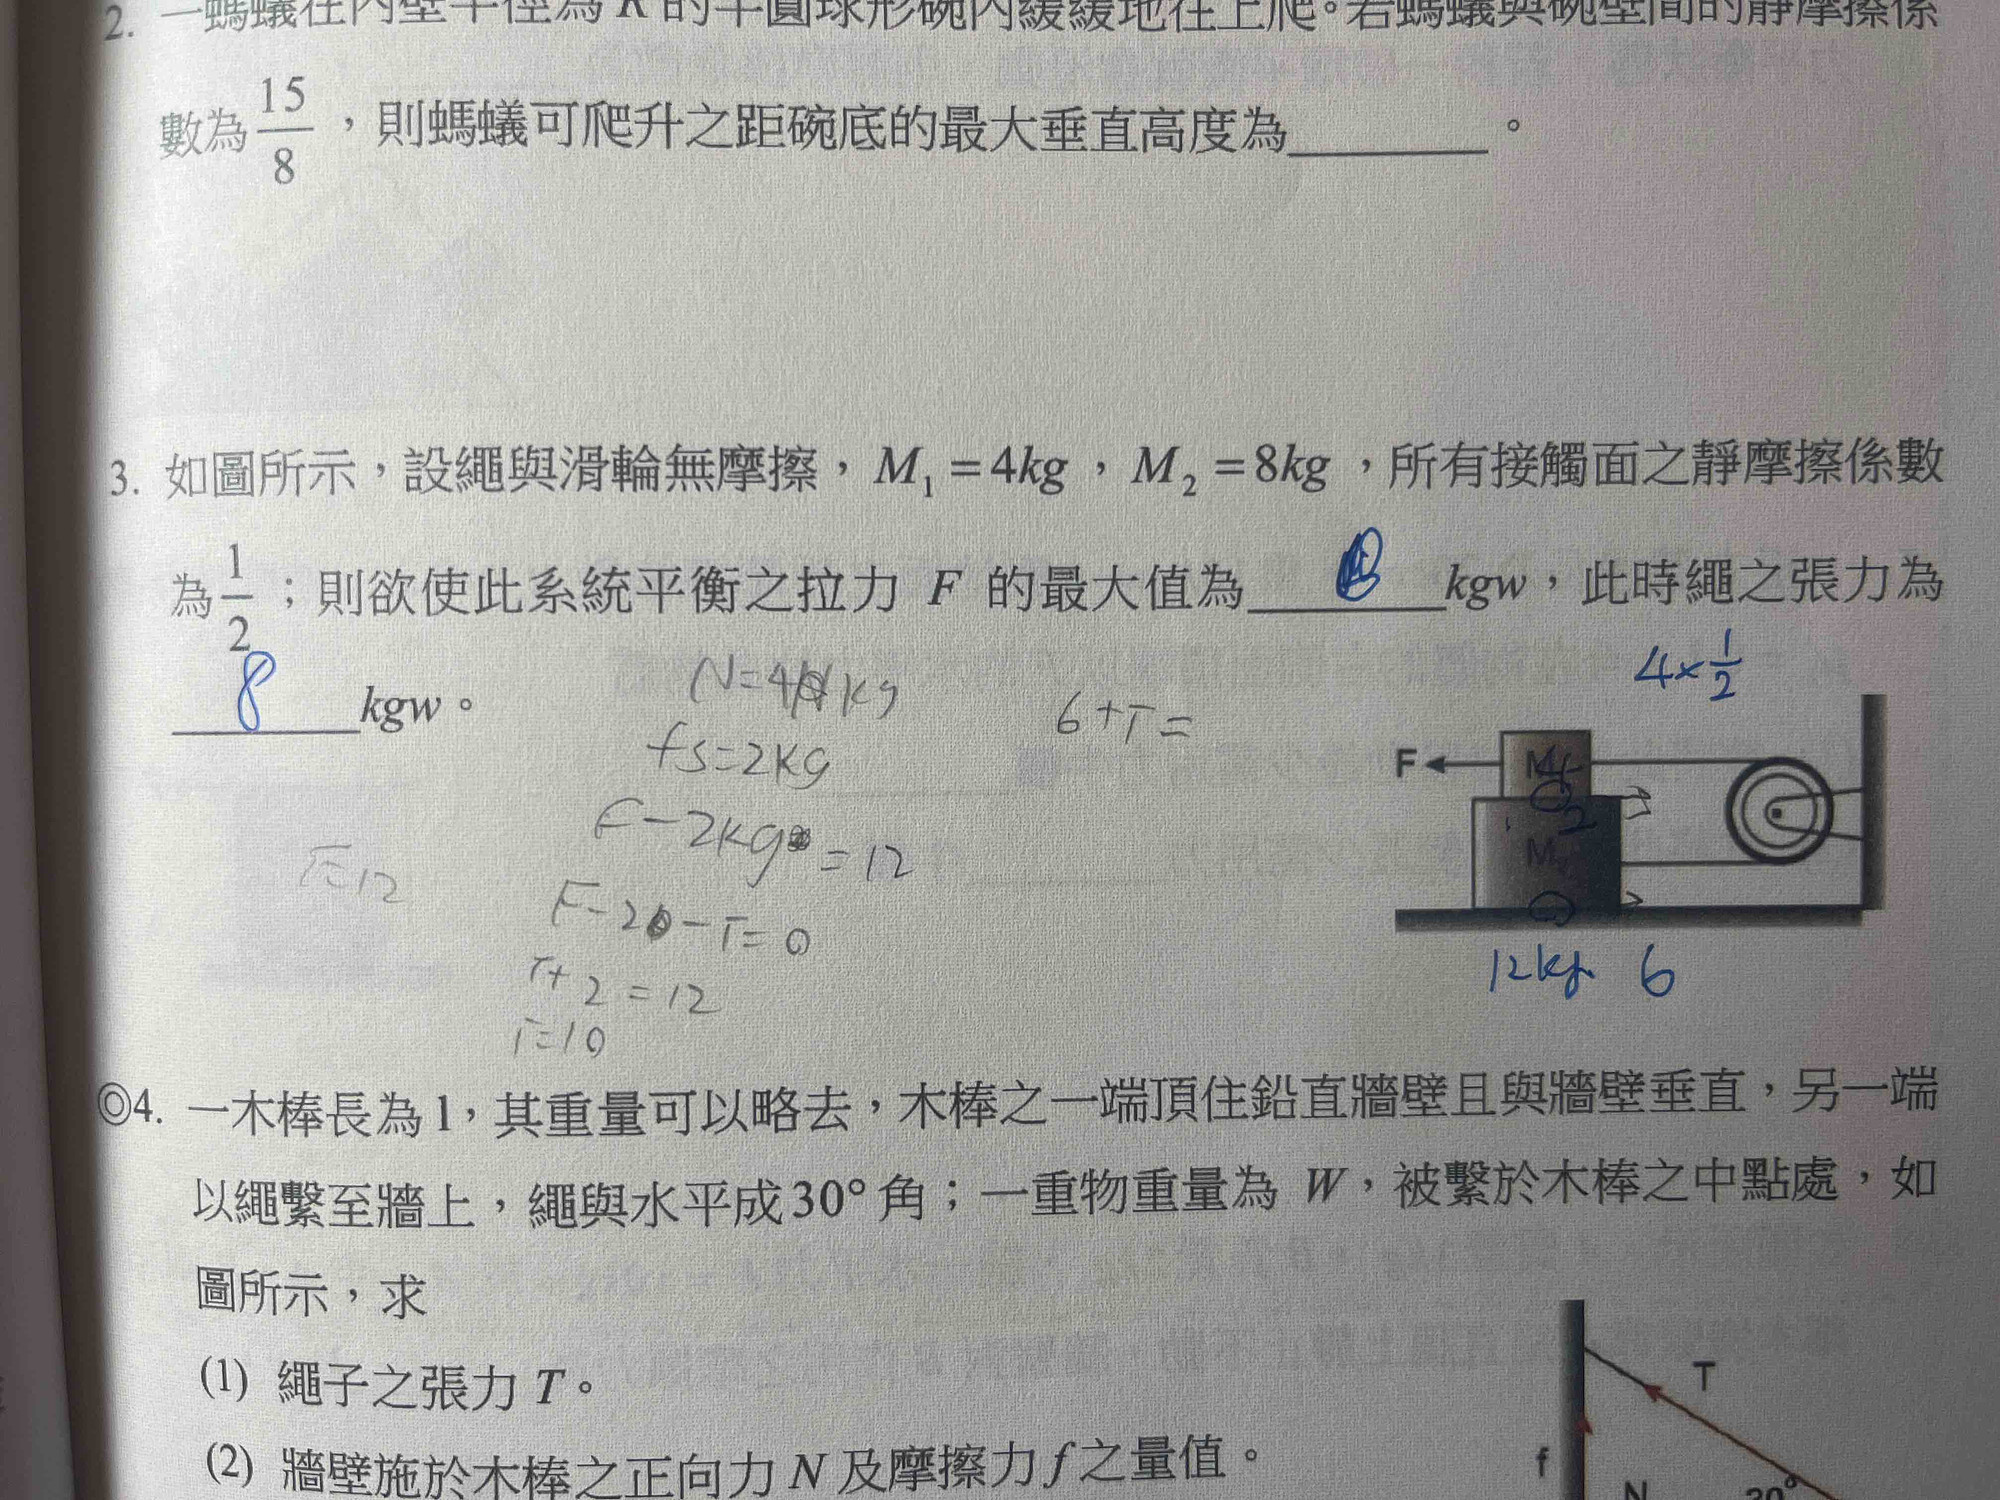 2. 一螞蟻在內壁半徑為 R 的半圓球形碗內緩緩地往上爬。若螞蟻與碗壁間的靜摩擦係
數為 15/8,則螞蟻可爬升之距碗底的最大垂直高度為______。
3. 如圖所示,設繩與滑輪無摩擦,M₁=4kg,M₂=8kg,所有接觸面之靜摩擦係數
為 1/2;則欲使此系統平衡之拉力 F 的最大值為______kgw,此時繩之張力為
8 kgw。
4×1/2
N=4 kg
6+T=
fs=2kg
F M₁
2
F-2kg =12
M₂
T=12
F-2 -T=0
12kg. 6
T+2=12
T=10
◎4. 一木棒長為1,其重量可以略去,木棒之一端頂住鉛直牆壁且與牆壁垂直,另一端
以繩繫至牆上,繩與水平成30°角;一重物重量為 W,被繫於木棒之中點處,如
圖所示,求
(1) 繩子之張力 T。
T
(2) 牆壁施於木棒之正向力 N 及摩擦力 f 之量值。
f
N 30°